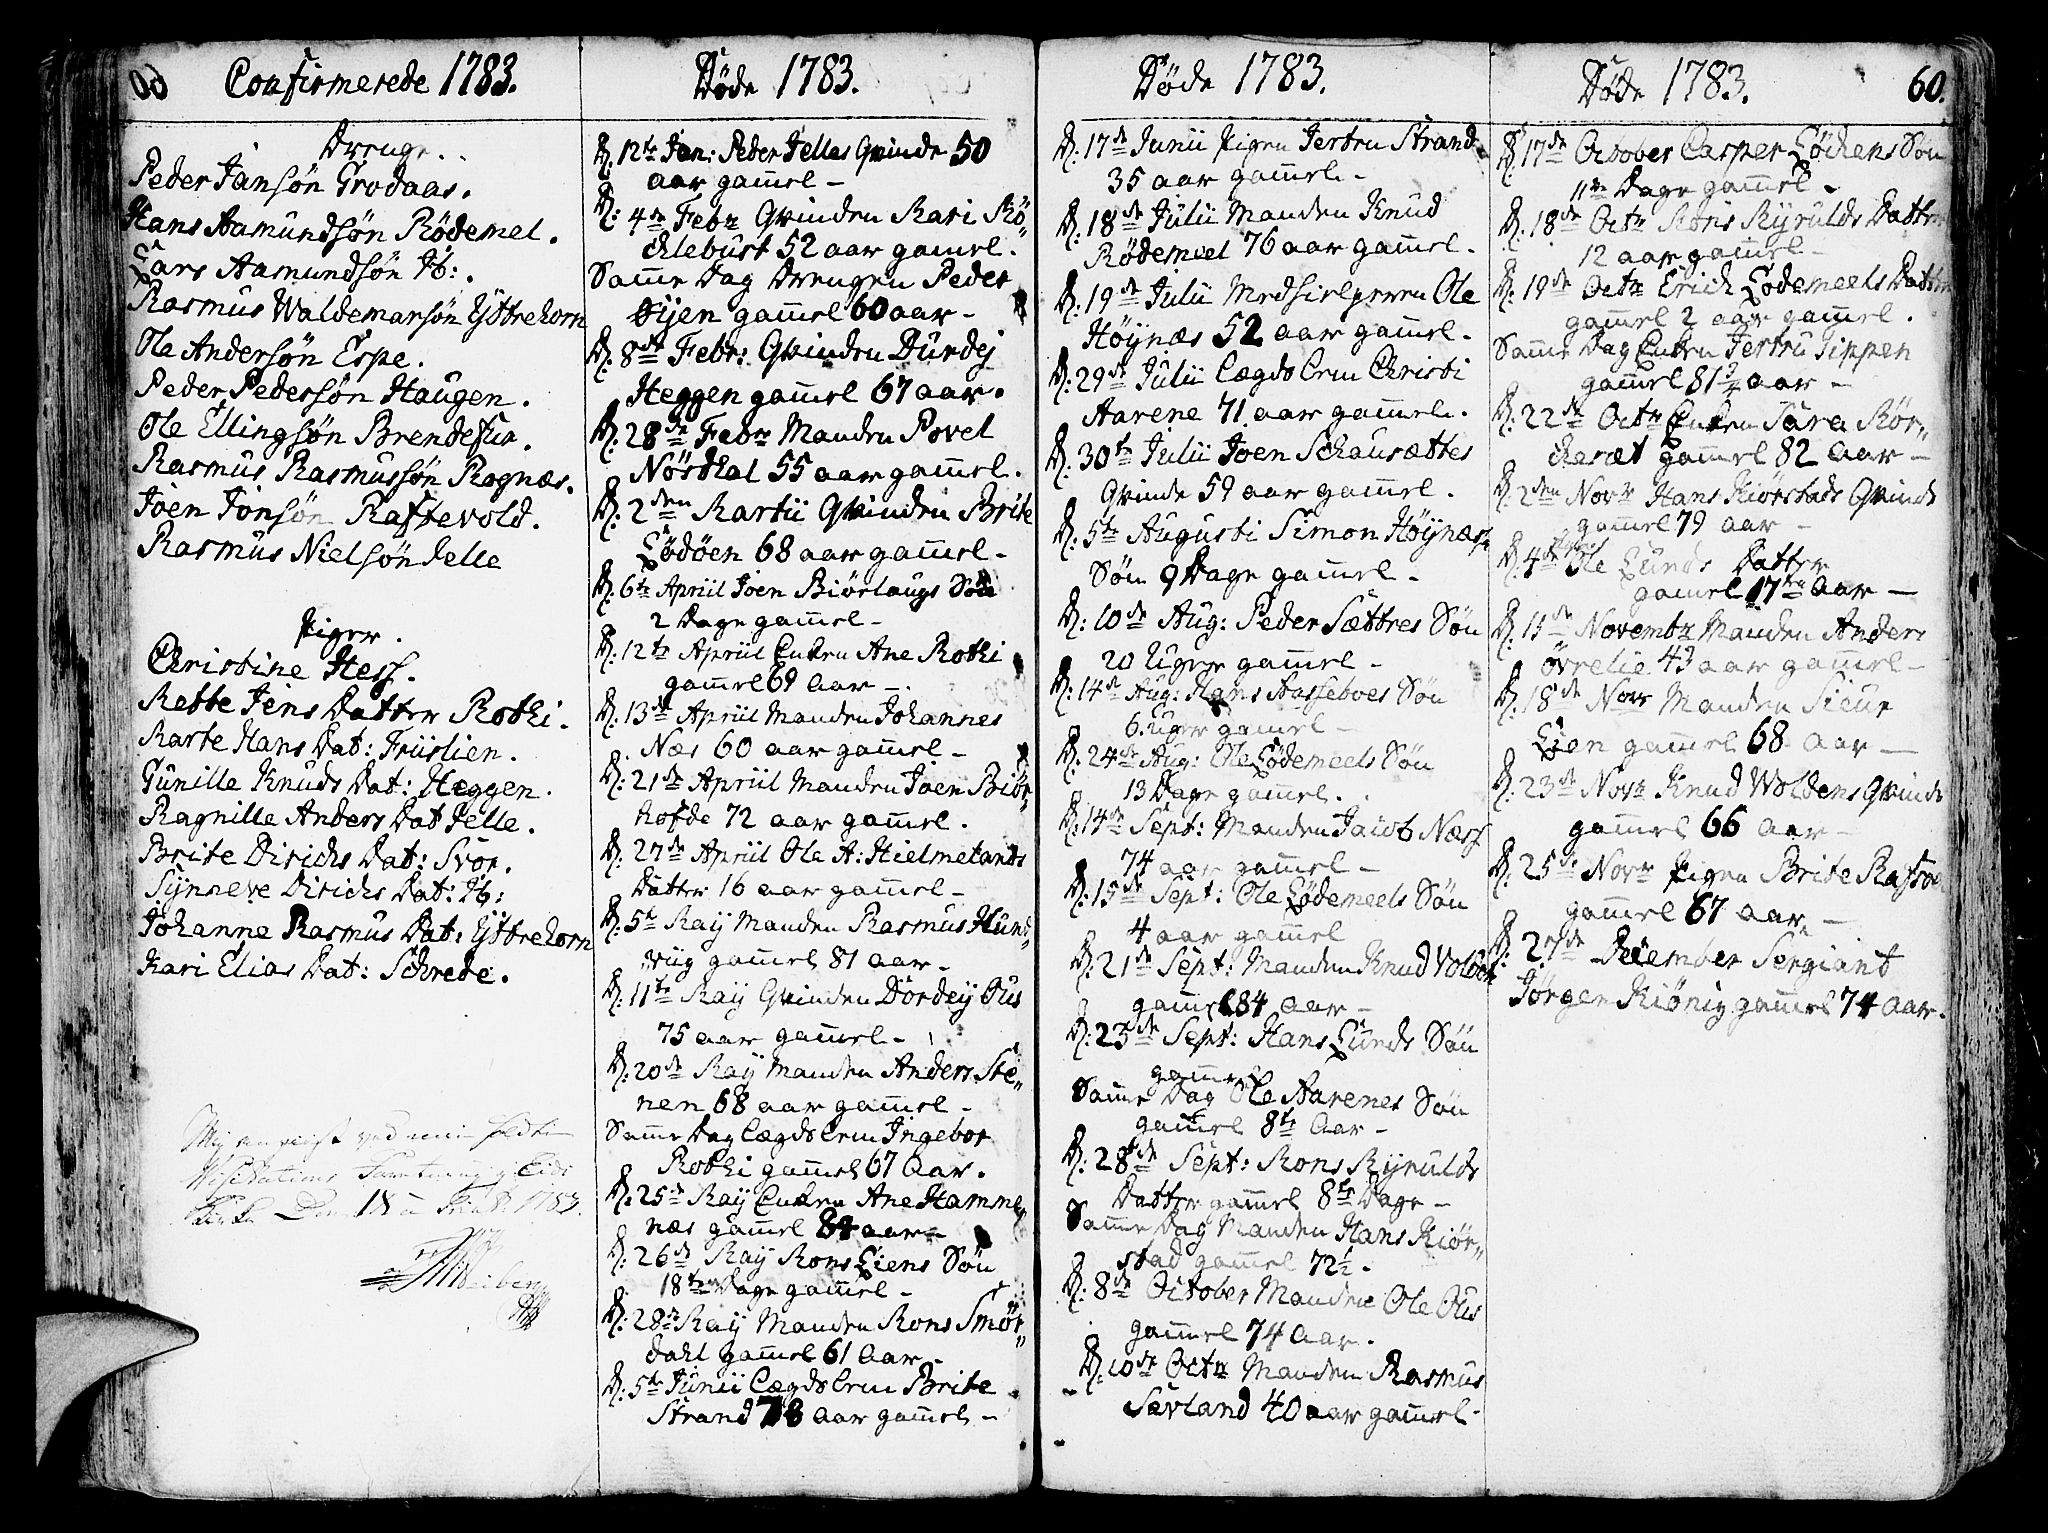 Confirmerede 1783.
Drenge.
Peder Jansøn Grodaas.
Hans Aamundsøn Rødemel.
Lars Aamundsøn Ib:.
Rasmus Waldemarsøn Ÿttrehorn
Ole Andersøn Espe.
Peder Pedersøn Haugen.
Ole Ellingsøn Brendefur.
Rasmus Rasmussøn Rognæs.
Joen Jonsøn Raftevold.
Rasmus Nielsøn Jelle
Piger.
Christine Hess.
Mette Jens Datter Rothi.
Marte Hans Dat: Friislien.
Gunille Knuds Dat: Heggen.
Ragnille Anders Dat Jelle.
Brite Dirichs Dat: Svor.
Synneve Dirichs Dat: Ib:
Johanne Rasmus Dat: Ÿttrehorn
Kari Elias Dat: Schrede.
Den 18 1783.
Døde 1783.
D: 12te Jan: Peder Jelles Qvinde 50
aar gam̄el -
D: 4de Febr Qvinden Kari Rö„
cklebust 52 aar gam̄el.
Sam̄e Dag Drengen Peder
Öijen gam̄el 60 aar -
D: 8de Febr: Qvinden Durdej
Heggen gam̄el 67 aar.
D: 28de Febr Manden Povel
Nörddal 55 aar gam̄el.
D: 2den Martii Qvinden Brite
Lödöen 68 aar gam̄el -
D: 6te Apriil Joen Biörlaugs Sön
2 Dage gam̄el -
D: 12te Apriil Enken Ane Rothi
gam̄el 69 Aar -
D: 13de Apriil Manden Johannes
Næs 60 aar gam̄el -
D: 21de Apriil Manden Joen Biör„
hofde 72 aar gam̄el.
D: 27de Apriil Ole A: Hielmelands
Datter 16 aar gam̄el -
D: 5te Maij Manden Rasmus Hund„
gam̄el 81 aar -
D: 11te Maij Qvinden Dordeij Ous
75 aar gam̄el -
D: 20de Maij Manden Anders Ste„
nen 68 aar gam̄el -
Sam̄e Dag Lægds Lem Ingebor
Rothi gam̄el 67 Aar.
D: 25de Maij Enken Ane Hamme„
næs gam̄el 84 aar -
D: 26de Maij Mons Liens Sön
18ten Dage gam̄el -
D: 28de Maij Manden Mons Smör„
dahl gam̄el 61 Aar -
D: 5te Junii Lægds Lem Brite
Strand 78 Aar gam̄el -
Døde 1783.
D: 17de Junii Pigen Jertru Strand
35 aar gam̄el -
D: 18de Julii Manden Knud
Rödemel 76 aar gam̄el -
D: 19de Julii Medhielperen Ole
Höynæs 52 aar gam̄el -
D: 29de Julii Lægds Lem Christi
Aarene 71 aar gam̄el.
D: 30te Julii Joen Schausættes
Qvinde 59 aar gam̄el.
D: 5te Augusti Simon Höynæs
Sön 9 Dage gam̄el -
D: 10de Aug: Peder Sættres Sön
20 Uger gam̄el -
D: 14de Aug: Hans Aasseboes Sön
6 Uger gam̄el -
D: 24de Aug: Ole Lödemeels Sön
13 Dage gam̄el.
D: 14de Sept: Manden Jacob Næss
74 aar gam̄el -
D: 15de Sept: Ole Lödemeels Sön
4 aar gam̄el
D: 21de Sept: Manden Knud Volden
gam̄el 84 aar -
D: 23de Sept: Hans Lunds Sön
gam̄el
Sam̄e Dag Ole Aarenes Sön
gam̄el 8te Aar -
D: 28de Sept: Mons Myrulds
Datter gam̄el 8te Dage -
Sam̄e Dag Manden Hans Kiör„
stad gam̄el 72½.
D: 8de October Manden Ole Ous
gam̄el 74 Aar.
D: 10de Octr Manden Rasmus
Sörland 40 aar gam̄el -
Døde 1783.
60.
D: 17de October Casper Lödens Sön
11te Dage gam̄el -
D: 18de Octr Mons Myrulds Datter
12 aar gam̄el -
D: 19de Octr Erich Lodemeels Datter
gam̄el 2 aar gam̄el.
Sam̄e Dag Enken Jertru Tippen
gam̄el 81¾ aar -
D: 22de Octr Enken Sara Kör„
gam̄el 82 Aar -
D: 2den Novr Hans Kiörstads Qvinde
gam̄el 79 aar -
D: 4de Ole Lunds Datter
gam̄el 17ten Aar -
D: 15de Novembr Manden Anders
Övrelie 43 aar gam̄el -
D: 18de Novr Manden Siur
Lien gam̄el 68 Aar -
D: 23de Novr Knud Woldens Qvinde
gam̄el 66 Aar -
D: 25de Novr Pigen Brite
gam̄el 67 aar -
D: 27de December Sergiant
Jørgen Kiönig gam̄el 74 aar.